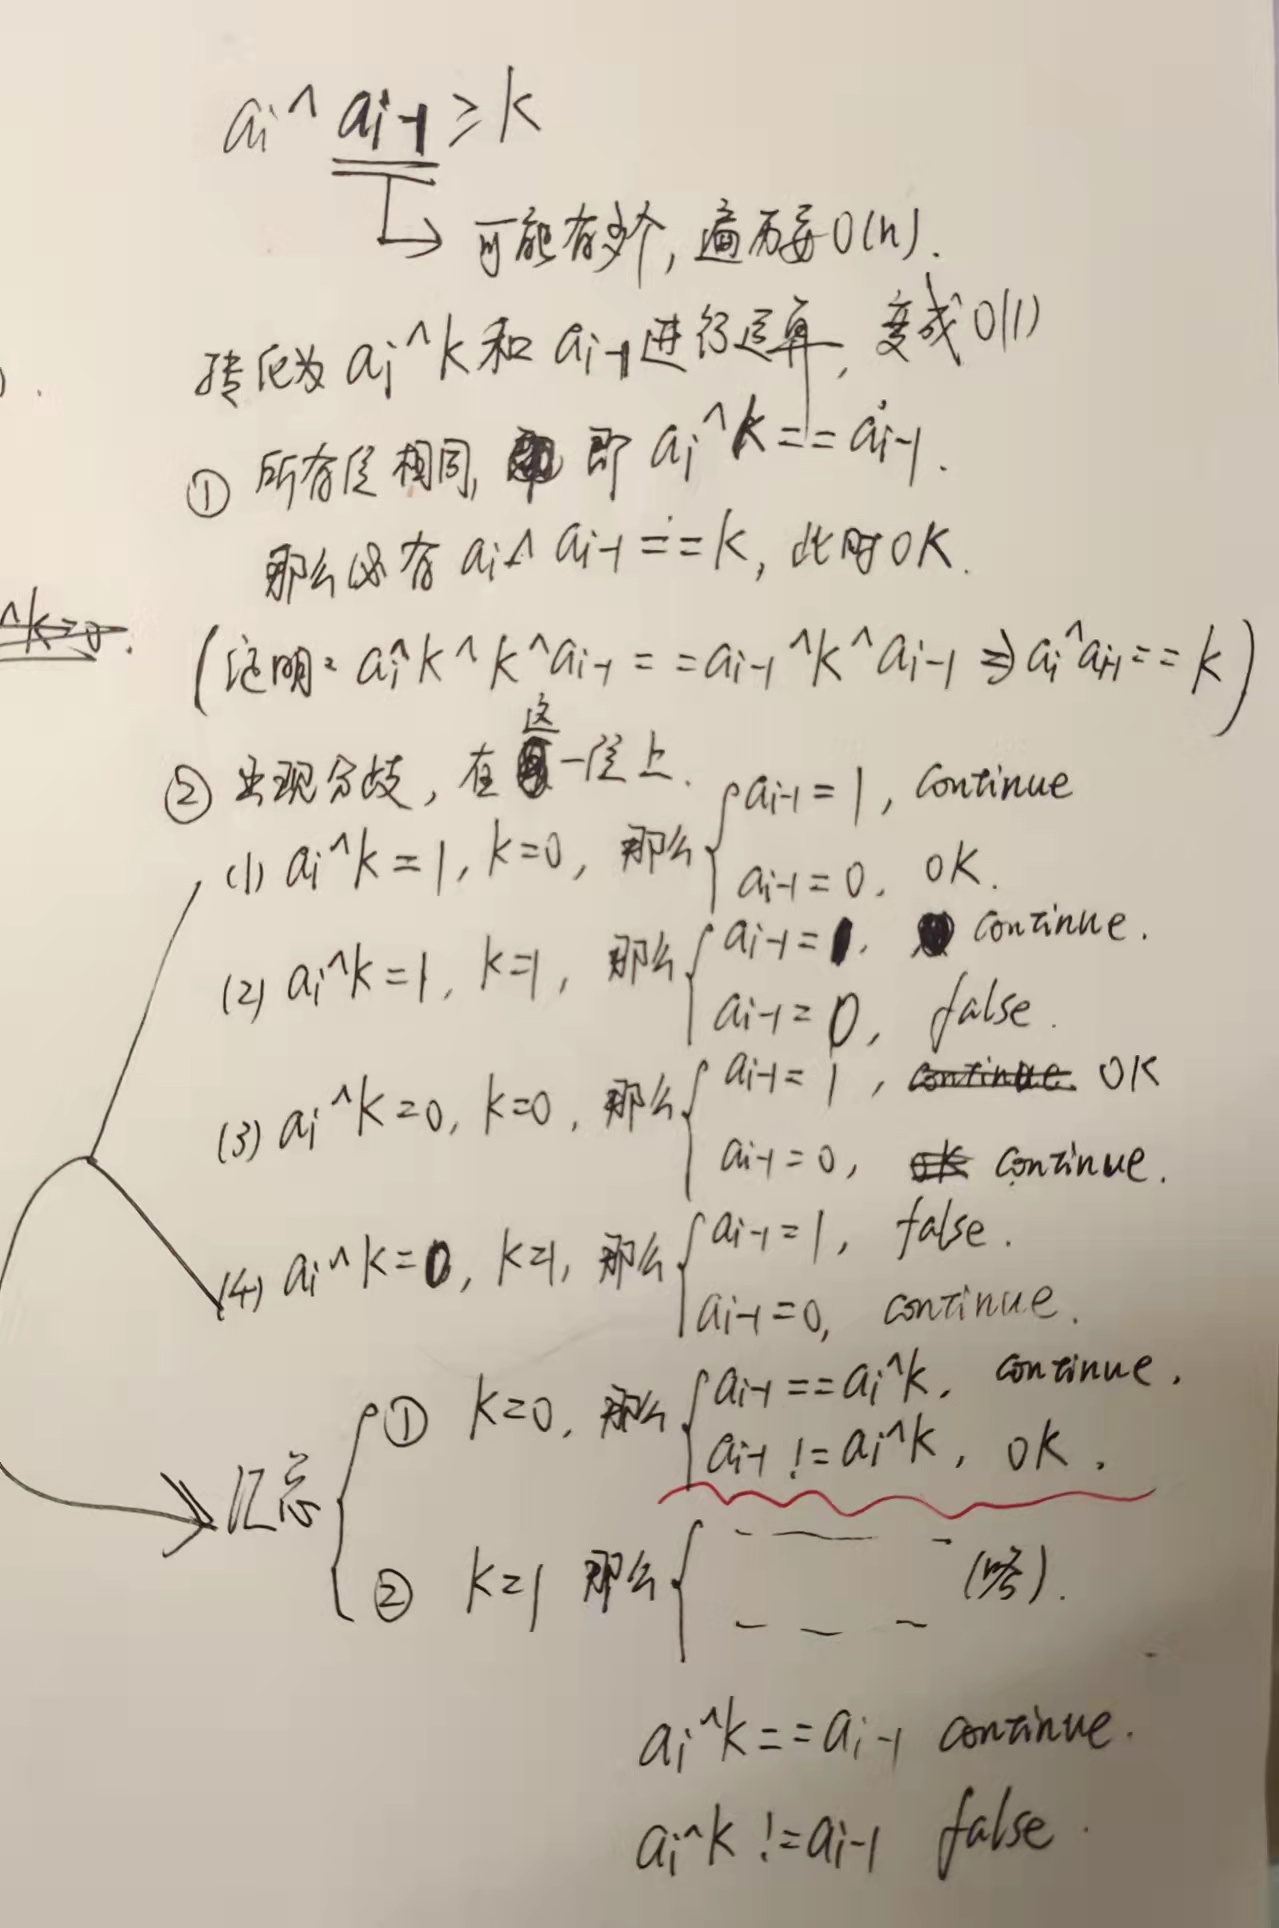 ai ^ ai-1 ≥ k
可能有多个, 遍历要O(n).
转化为 ai^k 和 ai-1 进行运算, 变成O(1)
① 所有位相同, 即 ai^k == ai-1.
那么必有 ai ^ ai-1 == k, 此时OK.
^k=0.
(证明: ai^k^k^ai-1 == ai-1^k^ai-1 => ai^ai-1 == k)
② 出现分歧, 在这一位上.
(1) ai^k=1, k=0, 那么 { ai-1=1, continue
ai-1=0, OK.
(2) ai^k=1, k=1, 那么 { ai-1=1, continue.
ai-1=0, false.
(3) ai^k=0, k=0, 那么 { ai-1=1, continue. OK
ai-1=0, OK continue.
(4) ai^k=0, k=1, 那么 { ai-1=1, false.
ai-1=0, continue.
汇总 { ① k=0, 那么 { ai-1==ai^k, continue.
ai-1 != ai^k, OK.
② k=1 那么 { (略).
ai^k==ai-1 continue.
ai^k !=ai-1 false.